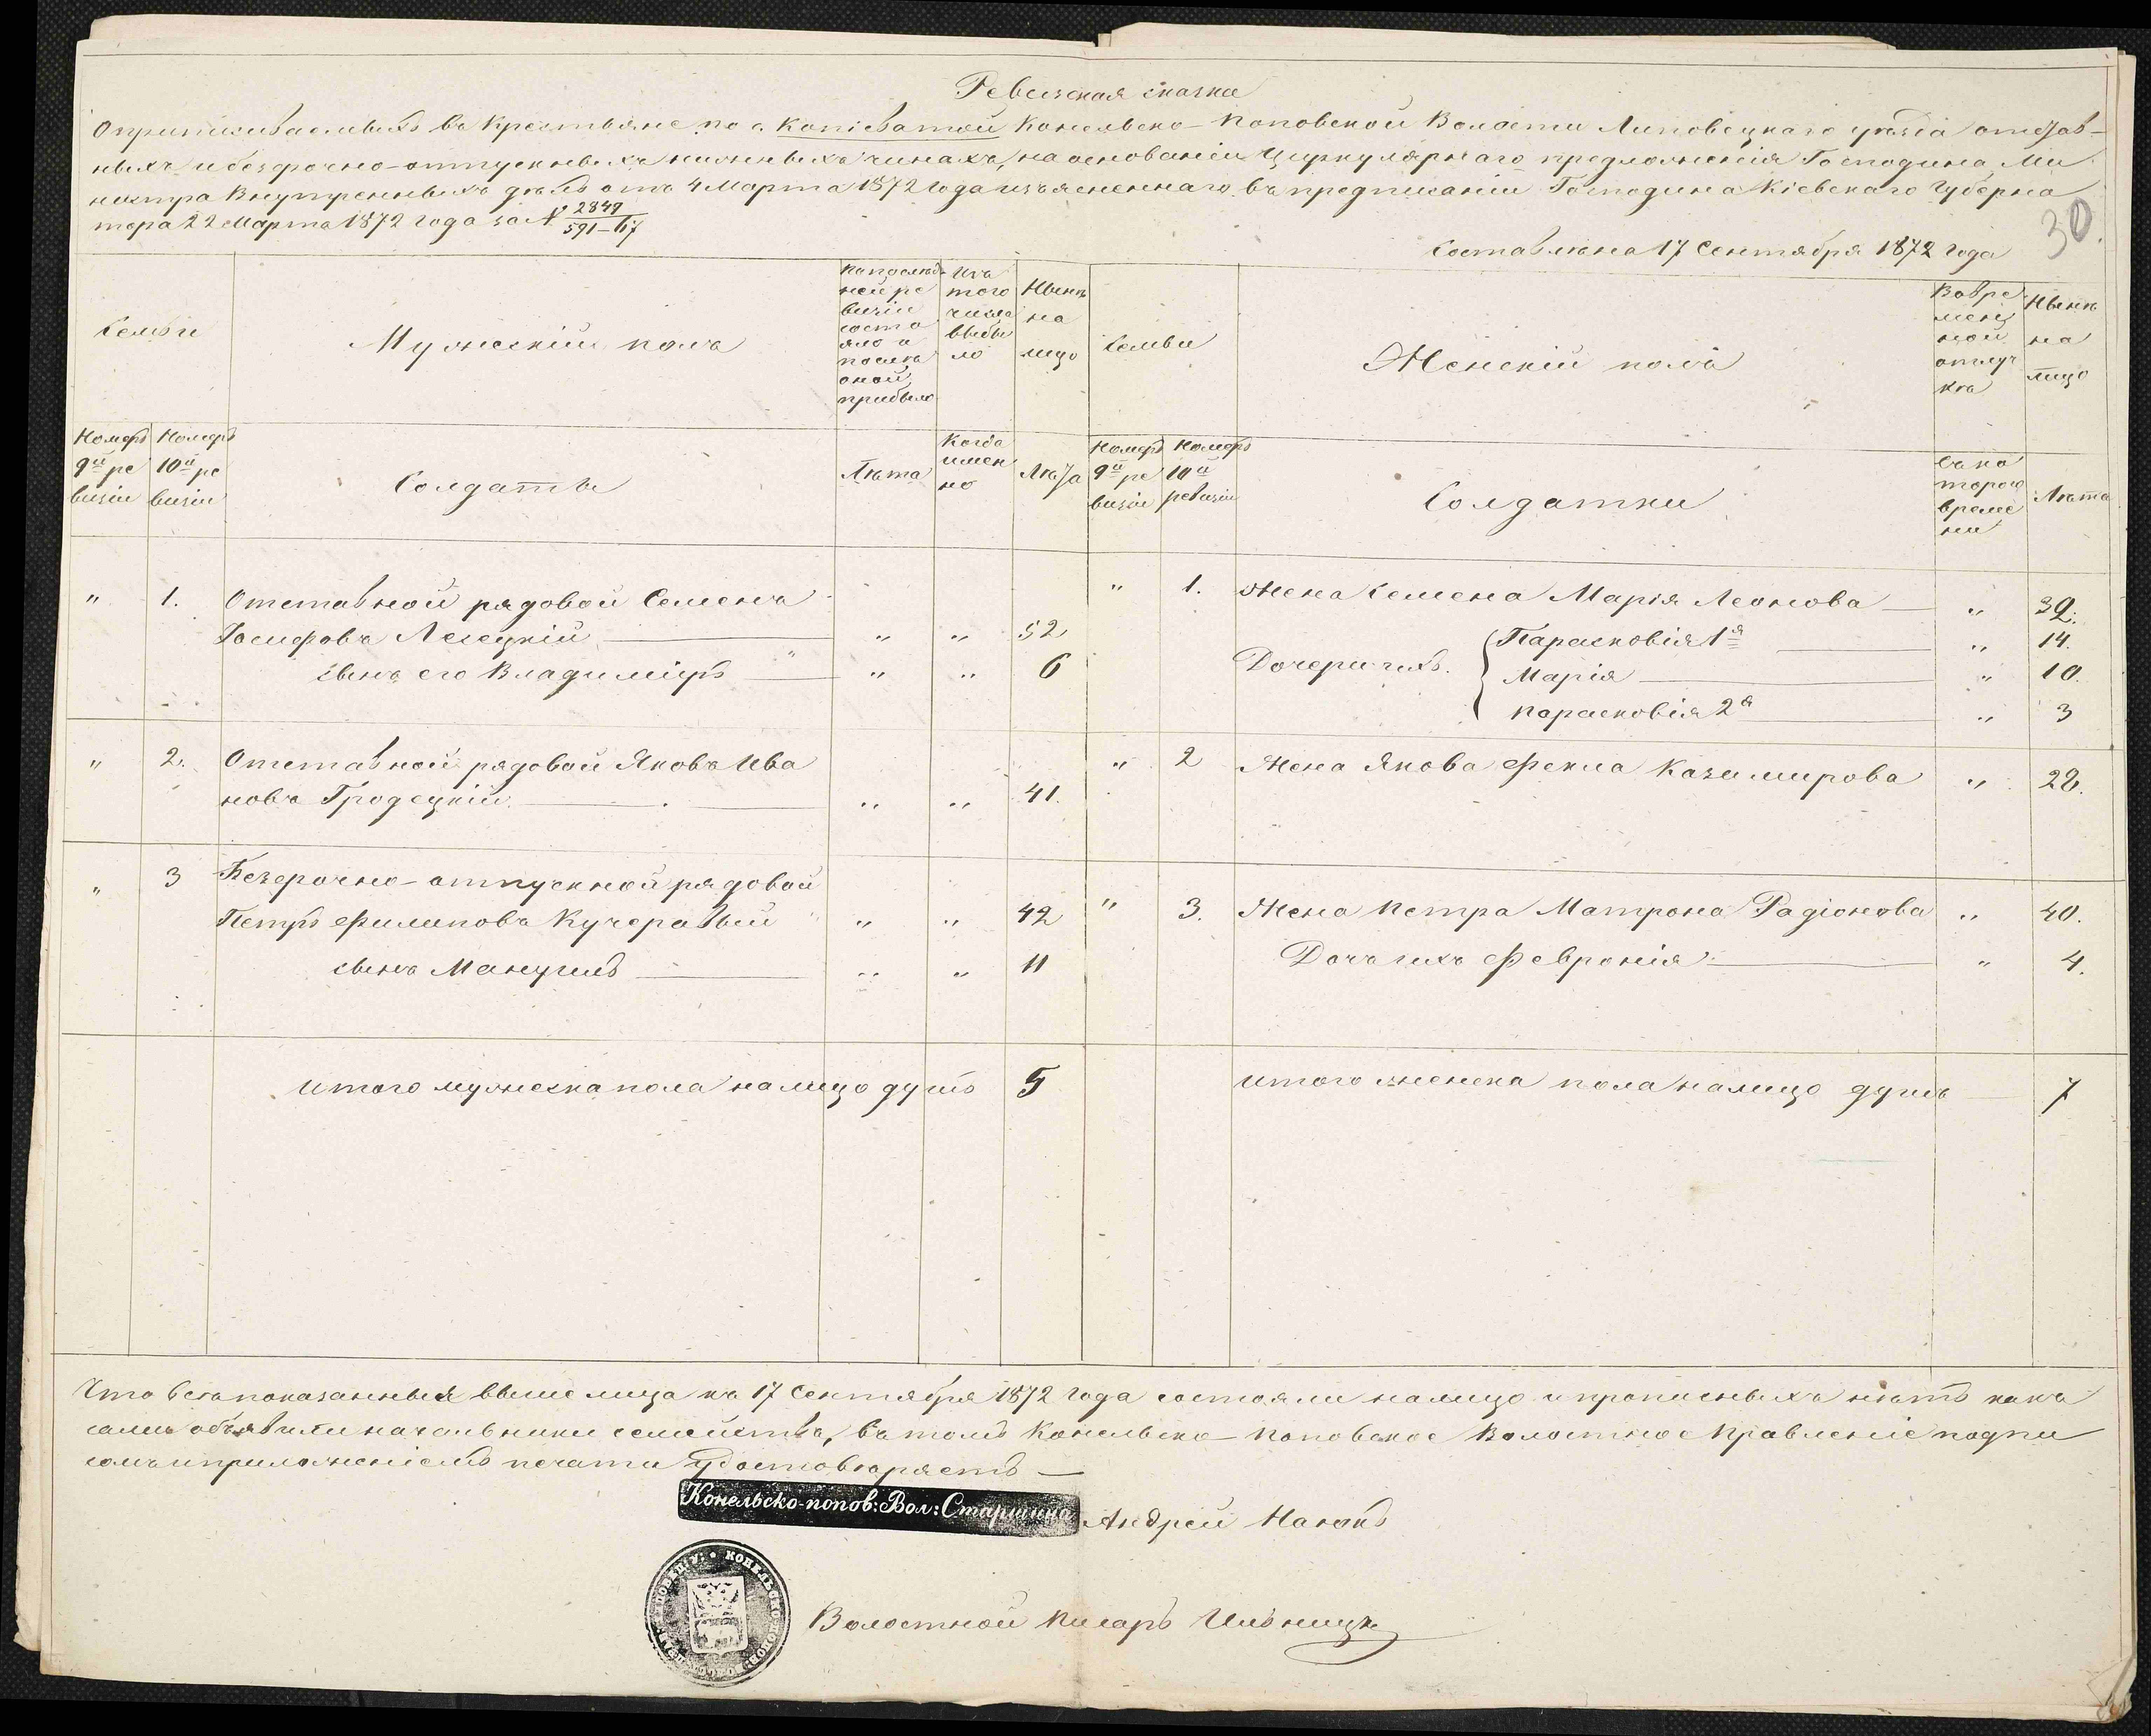 Ревизская сказка
О приписываемыхъ въ Крестьяне по с. Копіеватой Конельско-Поповской Волости Липовецкаго уѣзда отстав-
ныхъ и безсрочно-отпускныхъ нижныхъ чинахъ, на основаніи Циркулярнаго предложенія Господина Ми
нистра Внутренныхъ дѣлъ отъ 4 Марта 1872 года изъясненнаго въ предписаніи Господина Кіевскаго Губерна
тора 22 Марта 1872 года за № 2849/591-17
30
Составлена 17 Сентября 1872 года
Семьи
Мужескій полъ
По послѣд
ней ре
визіи
состо
яло и
послѣ
оной
прибыло
Изъ
того
числа
выбы
ло
Нынѣ
на
лицо
Семьи
Женскій полъ
Во вре
мен
ной
отлуч
кѣ
Нынѣ
на
лицо
Номеръ
9й ре
визіи
Номеръ
10й ре
визіи
Солдаты
Лѣта
Когда
имен
но
Лѣта
Номеръ
9й ре
визіи
Номеръ
10й
ревизіи
Солдатки
Съ ко
торого
време
ни
Лѣта
" 1. Отставной рядовой Семенъ
Іосифовъ Лесецкій " " 52
сынъ его Владиміръ " " 6
" 1. Жена Семена Марія Леонова " 39.
Дочери ихъ. Парасковія 1я " 14.
Марія " 10.
Парасковія 2я " 3
" 2. Отставной рядовой Яковъ Ива
новъ Гродецкій " " 41.
" 2 Жена Якова Фекла Казимирова " 28.
" 3 Безсрочно-отпускной рядовой
Петръ Филиповъ Кучеравый " " 42
сынъ Мануилъ " " 11
" 3. Жена Петра Матрона Радіонова " 40.
Дочь ихъ Февронія " 4.
Итого мужеска пола налицо душъ 5
Итого женска пола налицо душъ 7
Что всѣ показанныя выше лица къ 17 Сентября 1872 года состояли налицо и прописныхъ нѣтъ какъ
сами объявили начальники семействъ, въ томъ Конельско-Поповское Волостное Правленіе подпи
сомъ и приложеніемъ печати удостовѣряетъ —
Конельско-попов: Вол: Старшина Андрей
Волостной Писарь